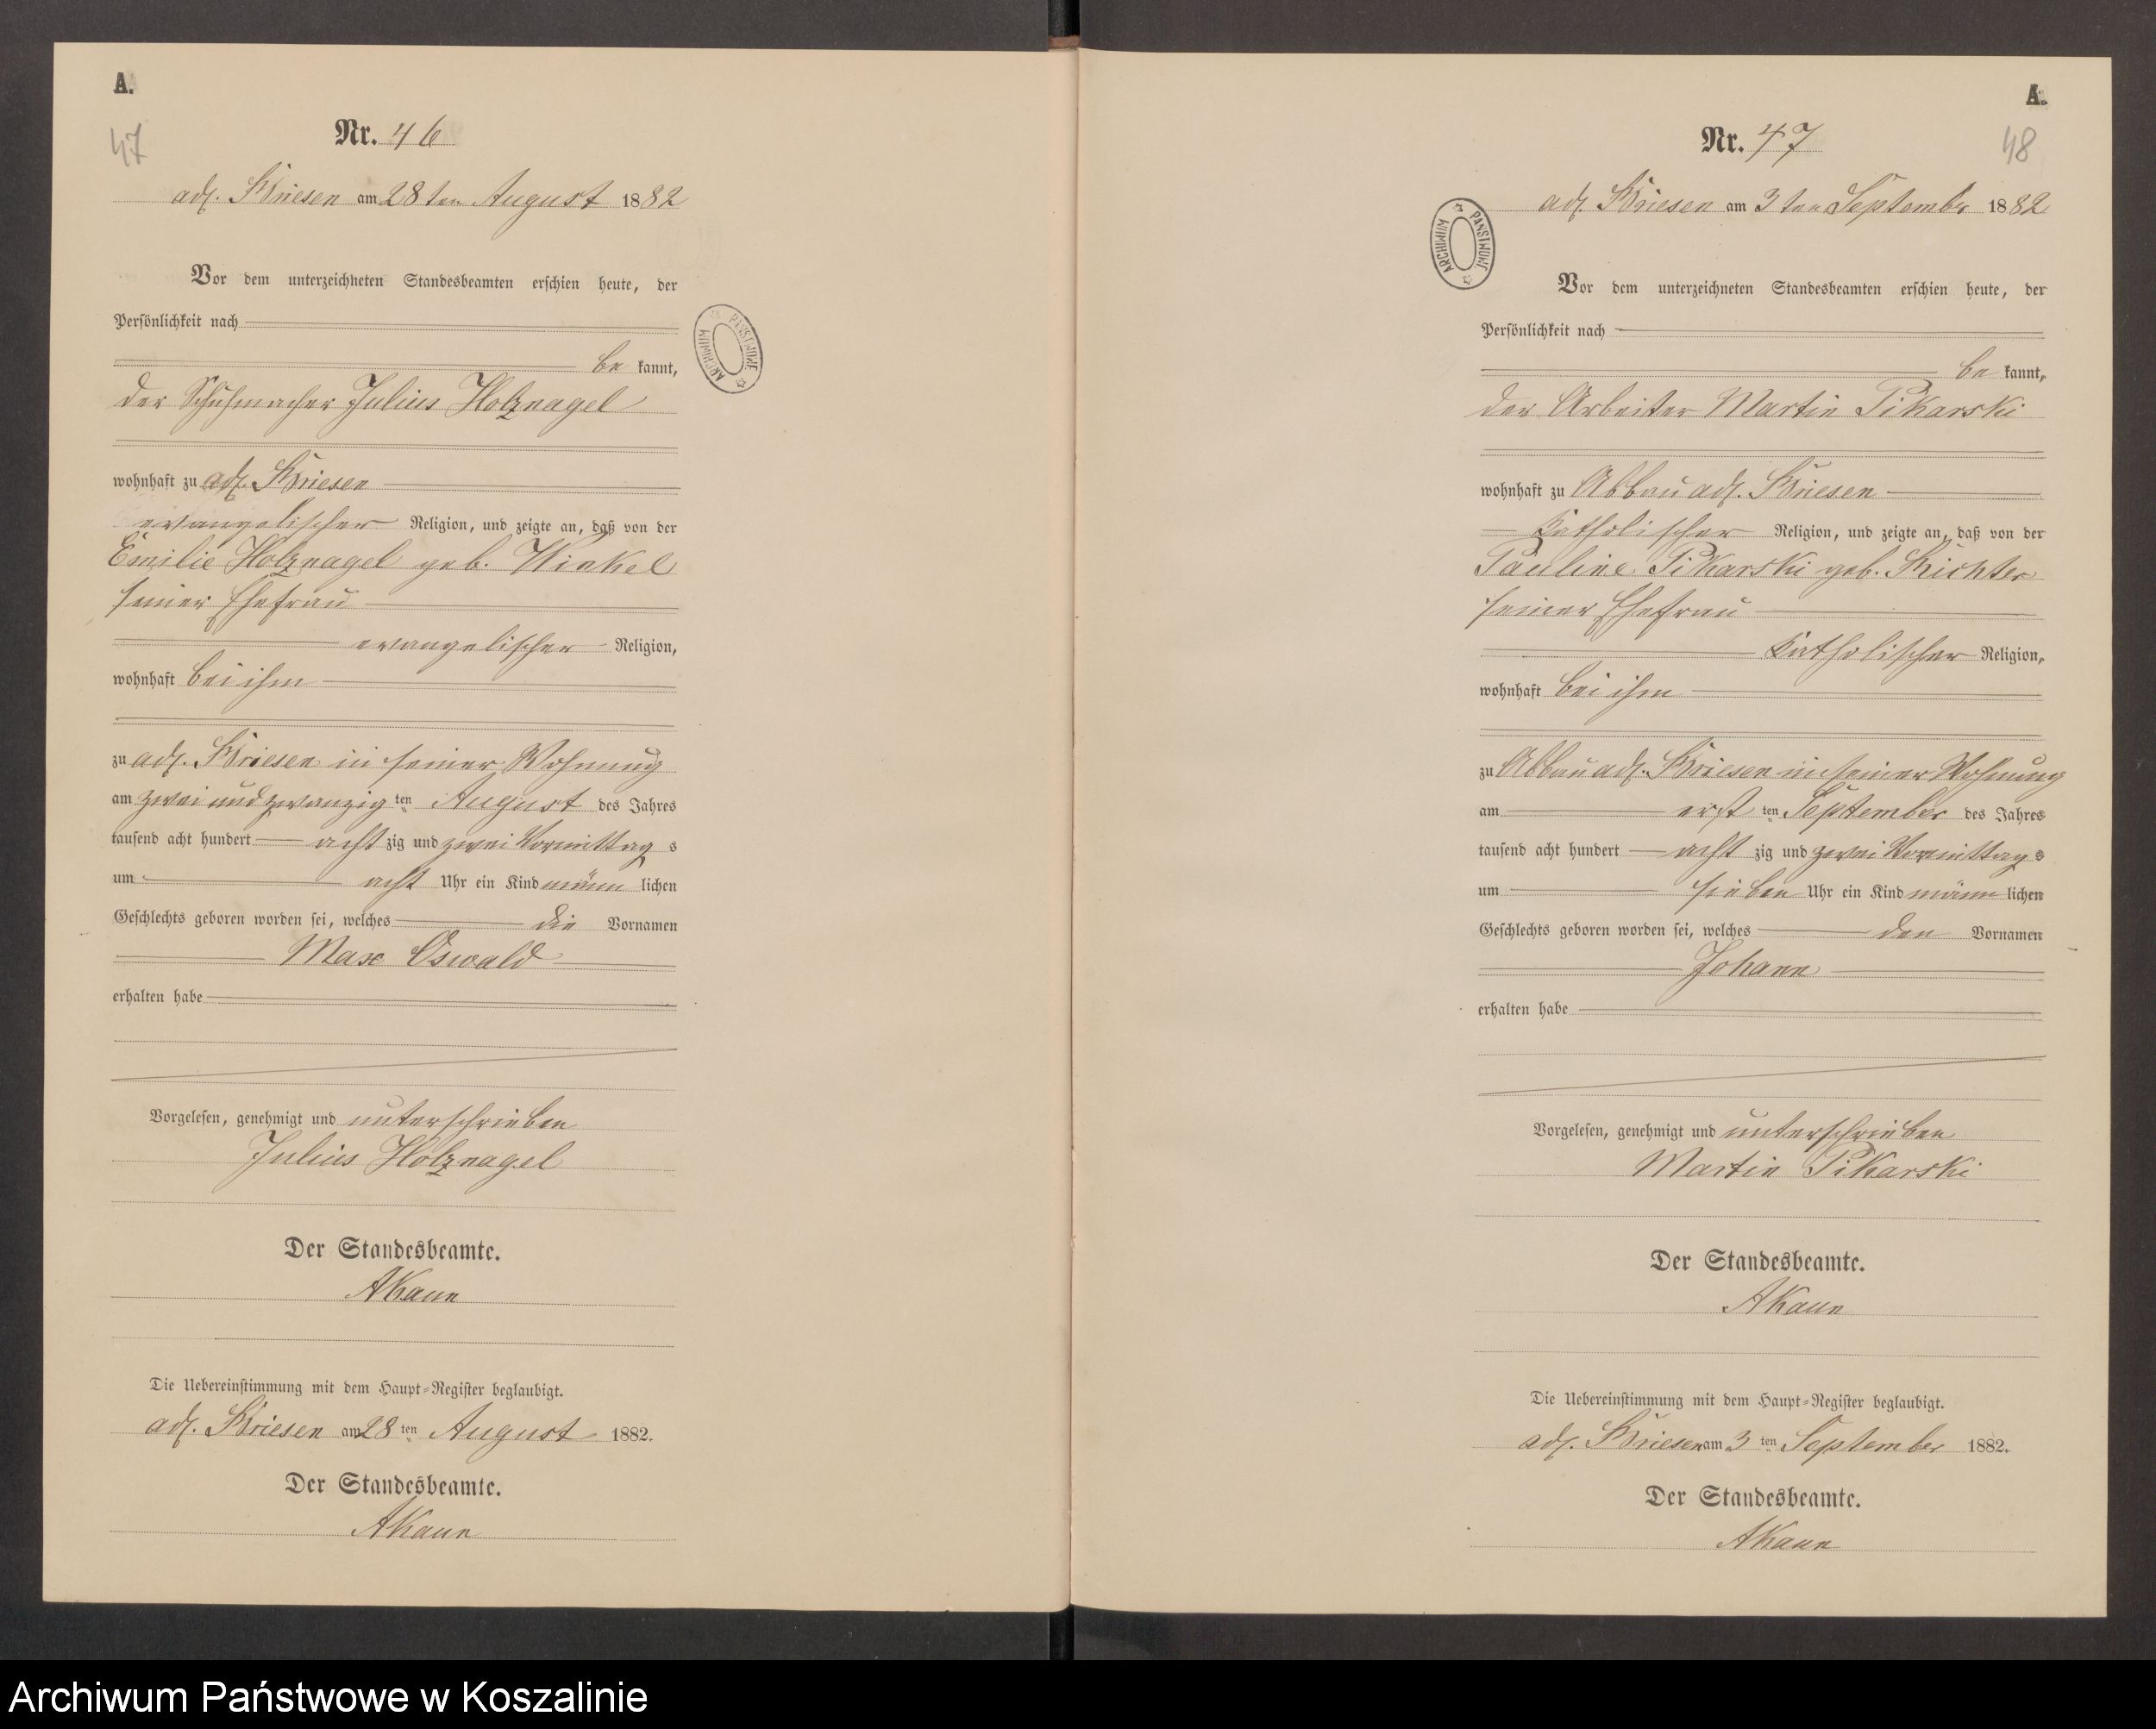 A.
47
Nr. 46
adl. Briesen am 28ten August 1882
Vor dem unterzeichneten Standesbeamten erschien heute, der
Persönlichkeit nach
be kannt,
der Schuhmacher Julius Holznagel
wohnhaft zu adl. Briesen
evangelischer Religion, und zeigte an, daß von der
Emilie Holznagel geb. Winkel
seiner Ehefrau
evangelischer Religion,
wohnhaft bei ihm
zu adl. Briesen in seiner Wohnung
am zwei und zwanzig ten August des Jahres
tausend acht hundert acht zig und zwei Vormittag s
um acht Uhr ein Kind männ lichen
Geschlechts geboren worden sei, welches die Vornamen
Max Oswald
erhalten habe
Vorgelesen, genehmigt und unterschrieben
Julius Holznagel
Der Standesbeamte.
AKaun
Die Uebereinstimmung mit dem Haupt-Register beglaubigt.
adl. Briesen am 28 ten August 1882.
Der Standesbeamte.
AKaun
ARCHIWUM PAŃSTWOWE
A.
48
Nr. 47
adl. Briesen am 3ten September 1882
ARCHIWUM PAŃSTWOWE
Vor dem unterzeichneten Standesbeamten erschien heute, der
Persönlichkeit nach
be kannt,
der Arbeiter Martin Pikarski
wohnhaft zu Abbau adl. Briesen
katholischer Religion, und zeigte an, daß von der
Pauline Pikarski geb. Richter
seiner Ehefrau
katholischer Religion,
wohnhaft bei ihm
zu Abbau adl. Briesen in seiner Wohnung
am erst ten September des Jahres
tausend acht hundert acht zig und zwei Vormittag s
um sieben Uhr ein Kind männ lichen
Geschlechts geboren worden sei, welches den Vornamen
Johann
erhalten habe
Vorgelesen, genehmigt und unterschrieben
Martin Pikarski
Der Standesbeamte.
AKaun
Die Uebereinstimmung mit dem Haupt-Register beglaubigt.
adl. Briesen am 3 ten September 1882.
Der Standesbeamte.
AKaun
Archiwum Państwowe w Koszalinie